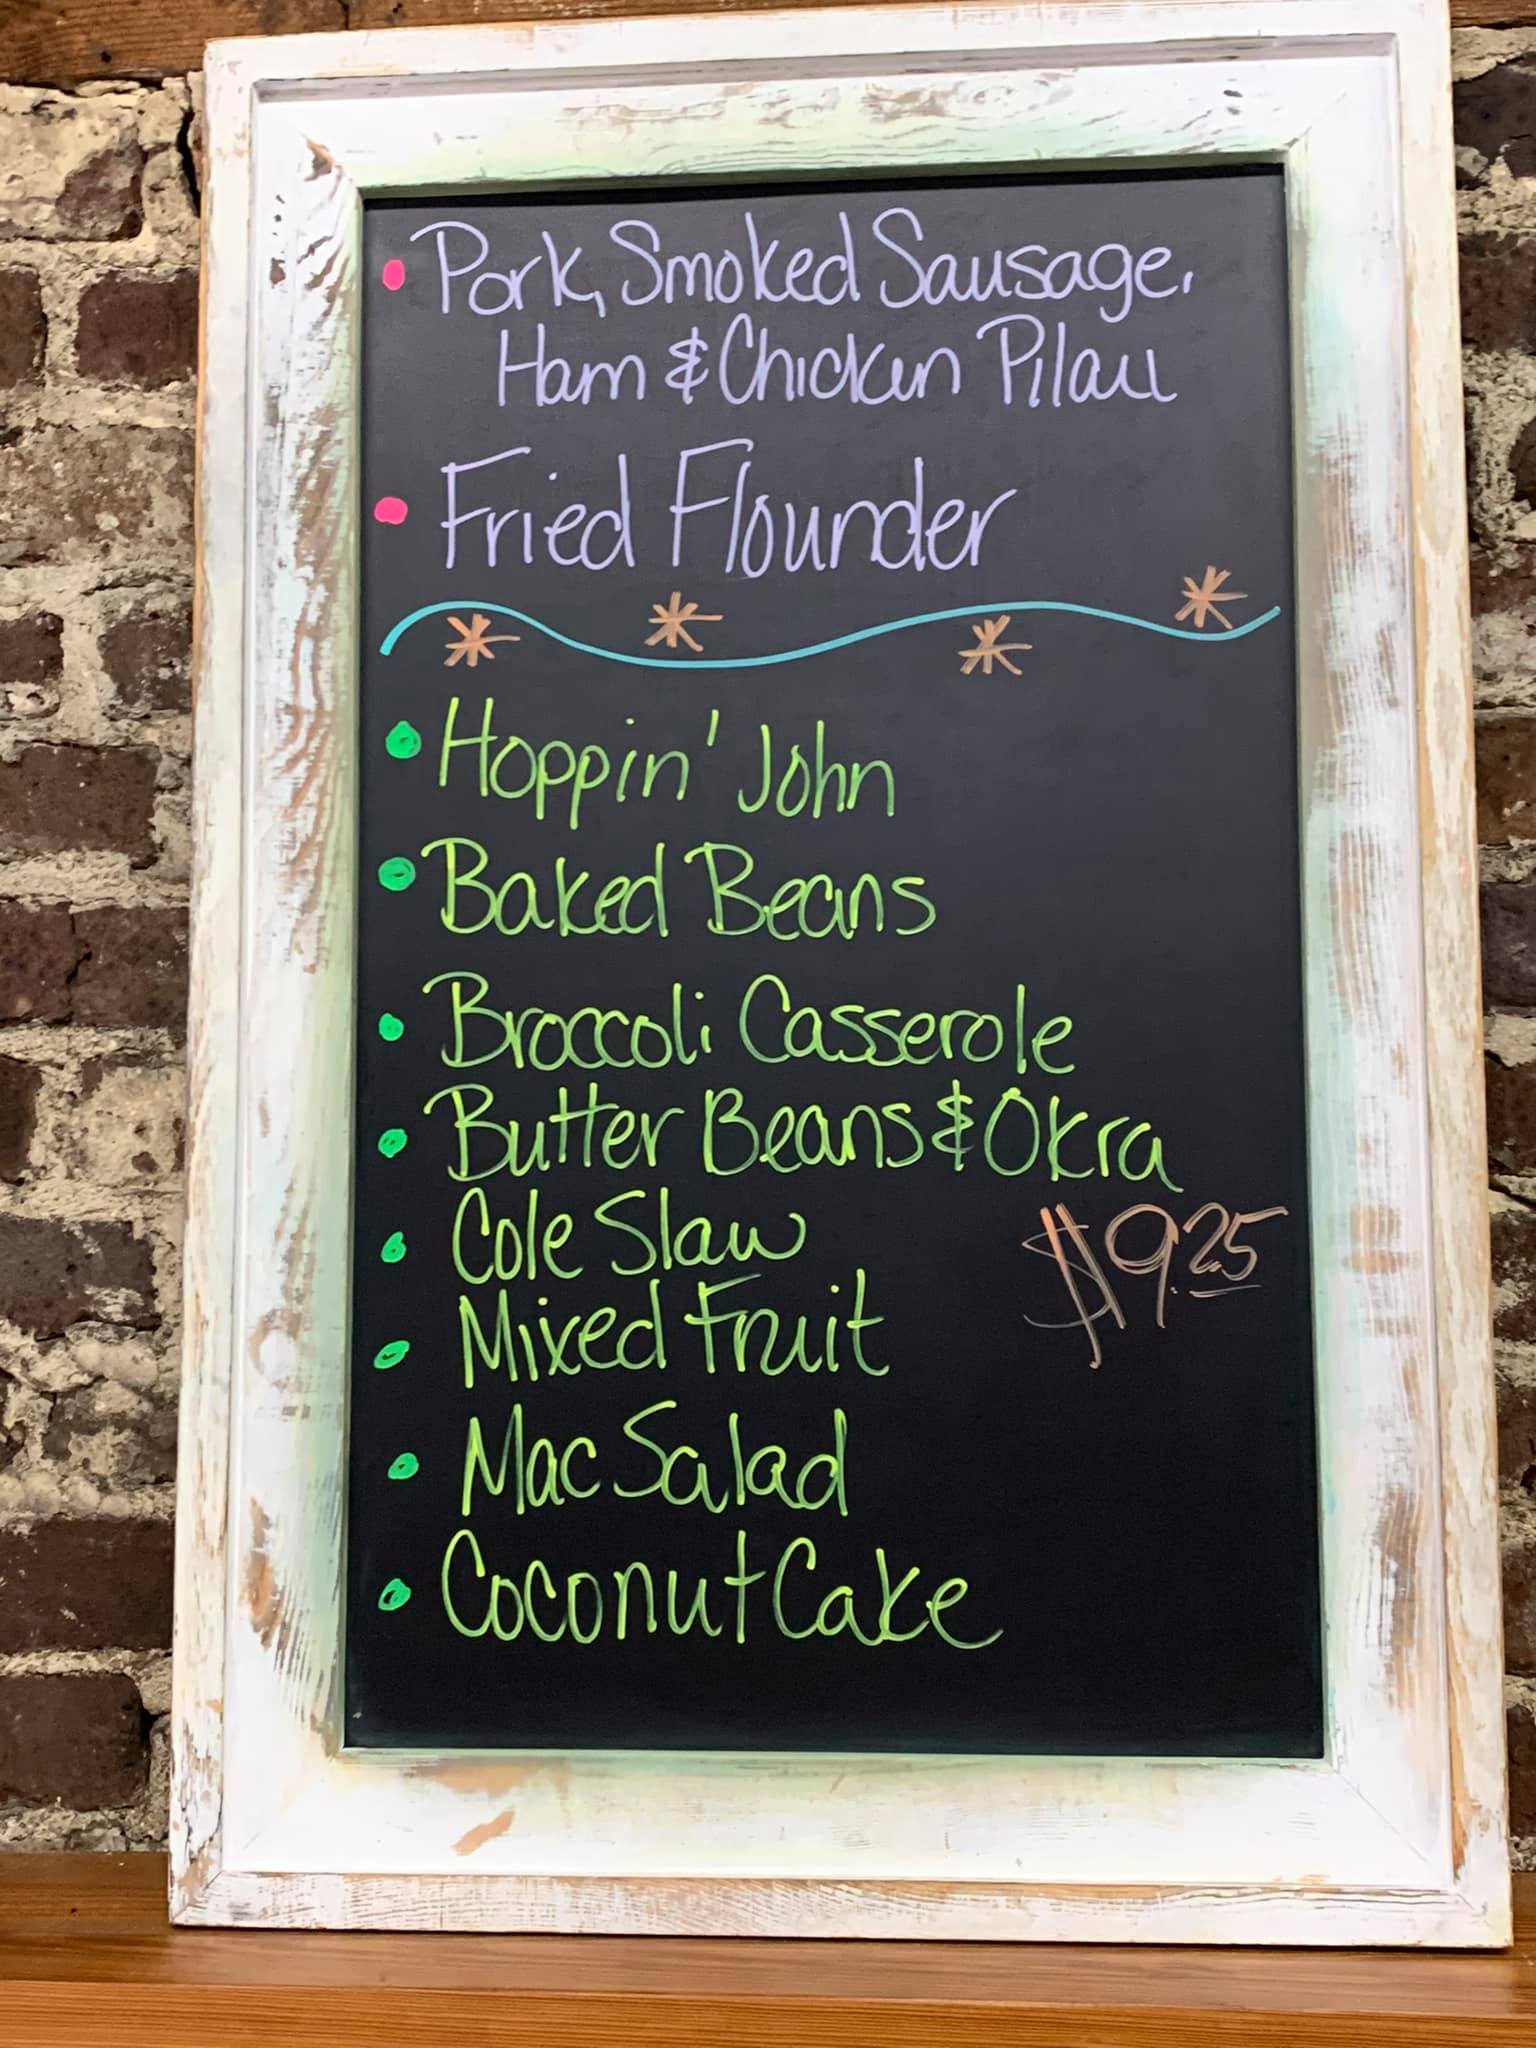 Pork, Smoked Sausage,
Ham & Chicken Pilau
Fried Flounder
Hoppin' John
Baked Beans
Broccoli Casserole
Butter Beans & Okra
Cole Slaw
$9.25
Mixed Fruit
Mac Salad
Coconut Cake